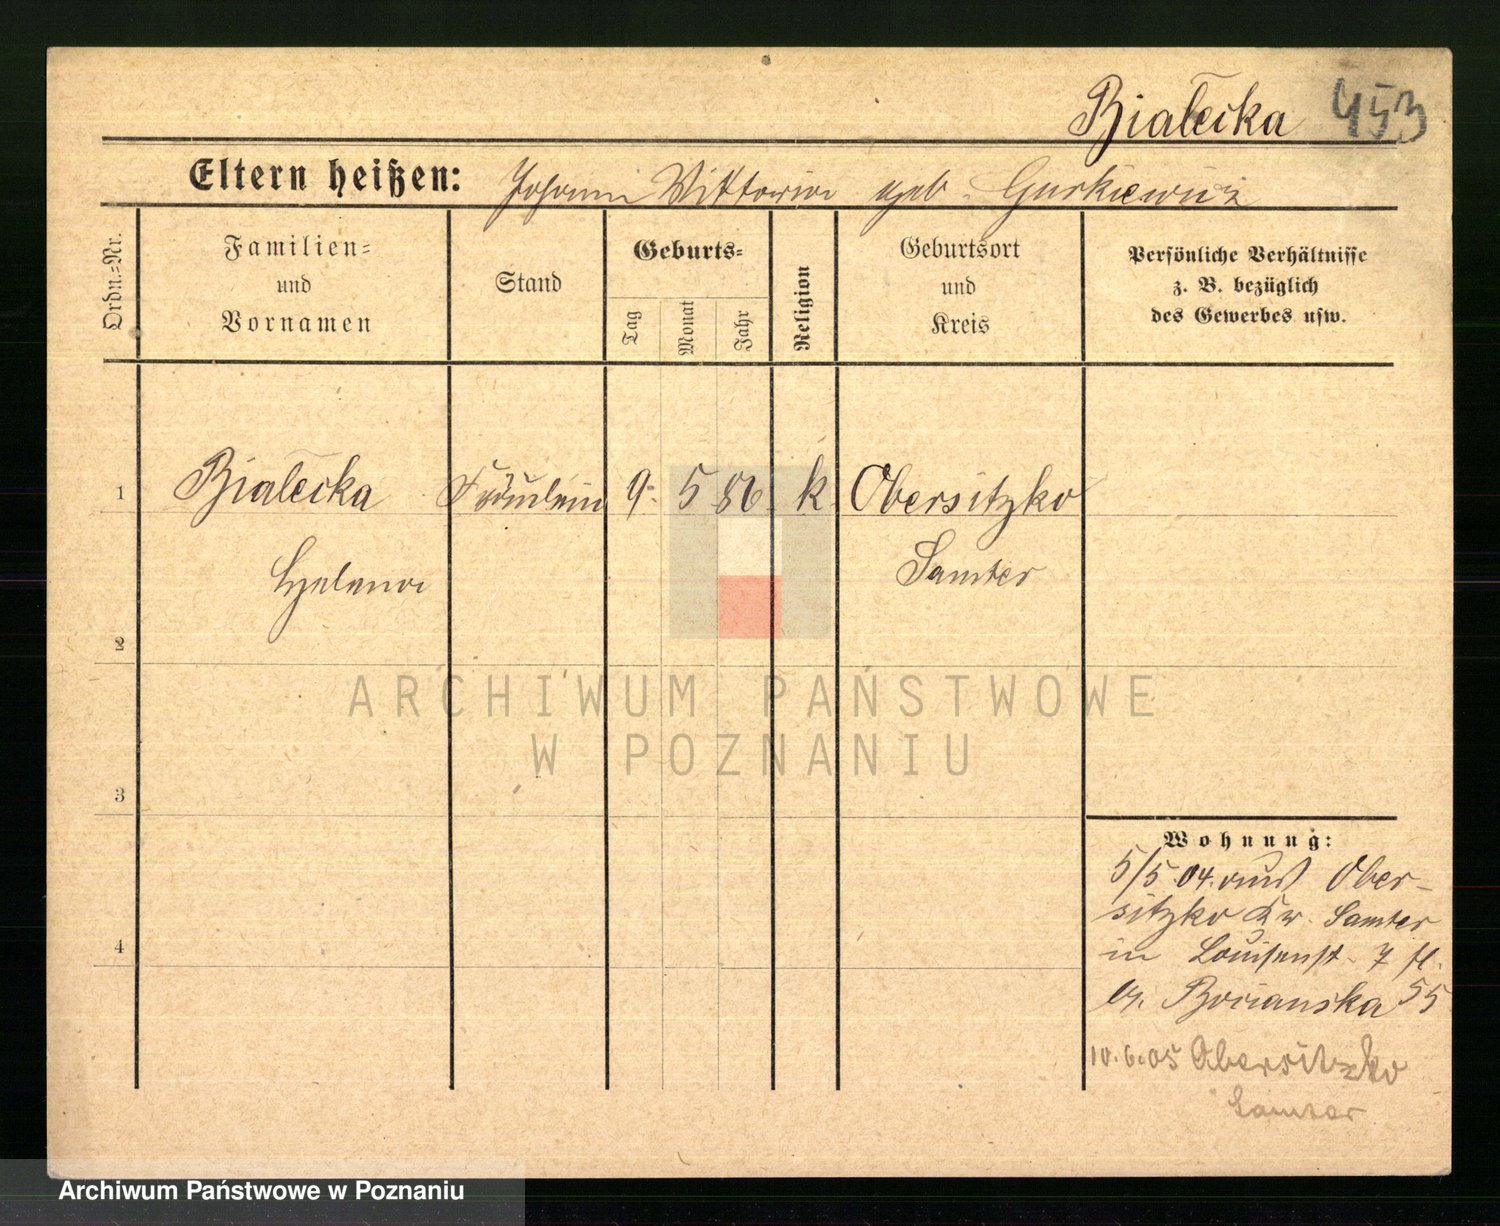 Bialecka 453
Eltern heißen: Johann Viktoria geb. Gurkiewicz
Ordn.-Nr.
Familien-
und
Vornamen
Stand
Geburts-
Tag
Monat
Jahr
Religion
Geburtsort
und
Kreis
Persönliche Verhältnisse
z. B. bezüglich
des Gewerbes usw.
1 Bialecka Fräulein 9. 5 86 k Obersitzko
Helena Samter
2
ARCHIWUM PAŃSTWOWE
W POZNANIU
3
Wohnung:
5/5 04. aus Ober-
sitzko Kr. Samter
4
in Louisenst. 7
Bocianska 55
10.6.05 Obersitzko
Samter
Archiwum Państwowe w Poznaniu